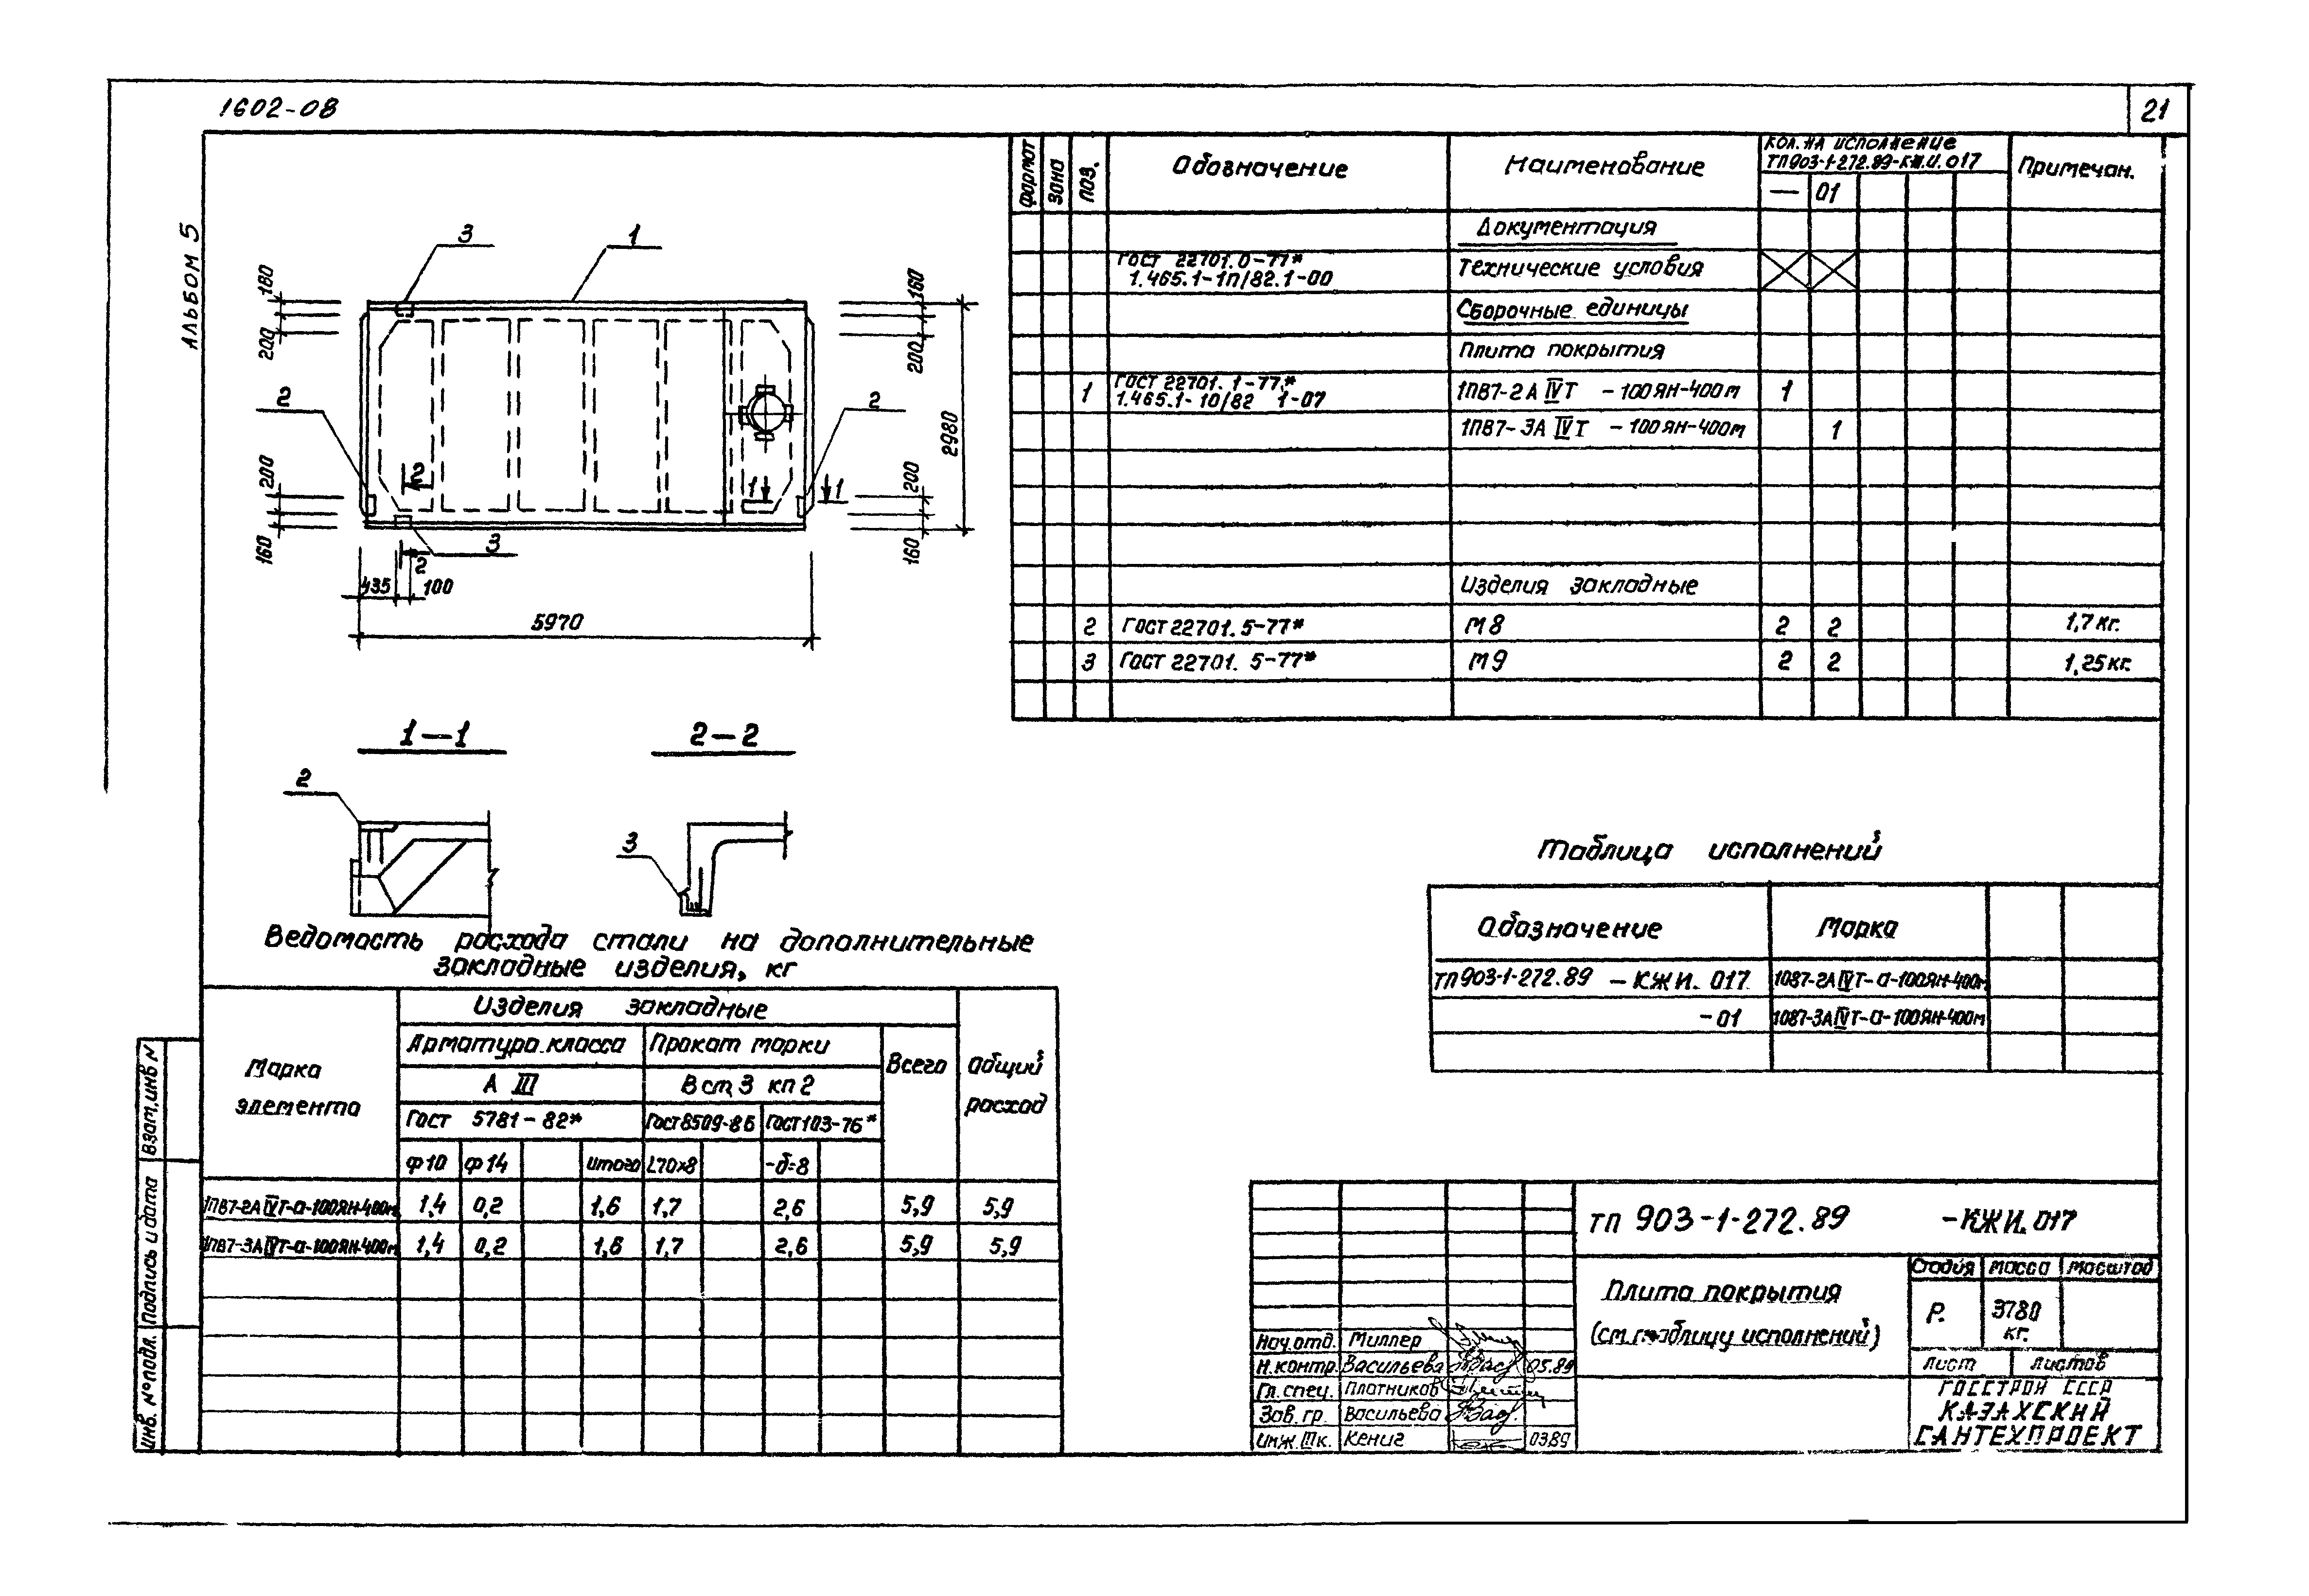 1602-08
21
АЛЬБОМ 5
3
1
180
200
160
200
2
2
2980
2
1
1
200
160
200
160
3
2
435
100
5970
1—1
2—2
2
3
формат
зона
поз.
Обозначение
Наименование
Кол. на исполнение
ТП903-1-272.89-КЖ.И.017
Примечан.
—
01
Документация
ГОСТ 22701.0-77*
1.465.1-1П/82.1-00
Технические условия
Сборочные единицы
Плита покрытия
1
ГОСТ 22701.1-77.*
1.465.1-10/82 1-07
1ПВ7-2А IV Т - 100ЯН-400м
1
1ПВ7-3А IV Т - 100ЯН-400м
1
Изделия закладные
2
ГОСТ 22701.5-77*
М8
2
2
1,7 кг.
3
ГОСТ 22701.5-77*
М9
2
2
1,25 кг.
Ведомость расхода стали на дополнительные
закладные изделия, кг
Марка
элемента
Изделия закладные
Арматура класса
Прокат марки
Всего
Общий
расход
А III
В ст 3 кп 2
ГОСТ 5781-82*
ГОСТ 8509-86
ГОСТ 103-76*
Ф10
Ф14
Итого
L70х8
-δ=8
1ПВ7-2А IV Т-а-100ЯН-400м
1,4
0,2
1,6
1,7
2,6
5,9
5,9
1ПВ7-3А IV Т-а-100ЯН-400м
1,4
0,2
1,6
1,7
2,6
5,9
5,9
Таблица исполнений
Обозначение
Марка
ТП 903-1-272.89 - КЖИ. 017
1087-2А IV Т-а-100ЯН-400м
-01
1087-3А IV Т-а-100ЯН-400м
Взам. инв N
Подпись и дата
Инв. № подл.
ТП 903-1-272.89 -КЖИ.017
Плита покрытия
(см. таблицу исполнений)
Стадия
Масса
Масштаб
Р.
3780
кг.
Лист
Листов
ГОССТРОЙ СССР
КАЗАХСКИЙ
САНТЕХПРОЕКТ
Нач. отд. Миллер
Н. контр. Васильева 05.89
Гл. спец. Плотников
Зав. гр. Васильева
Инж. IIIк. Кениг 03.89